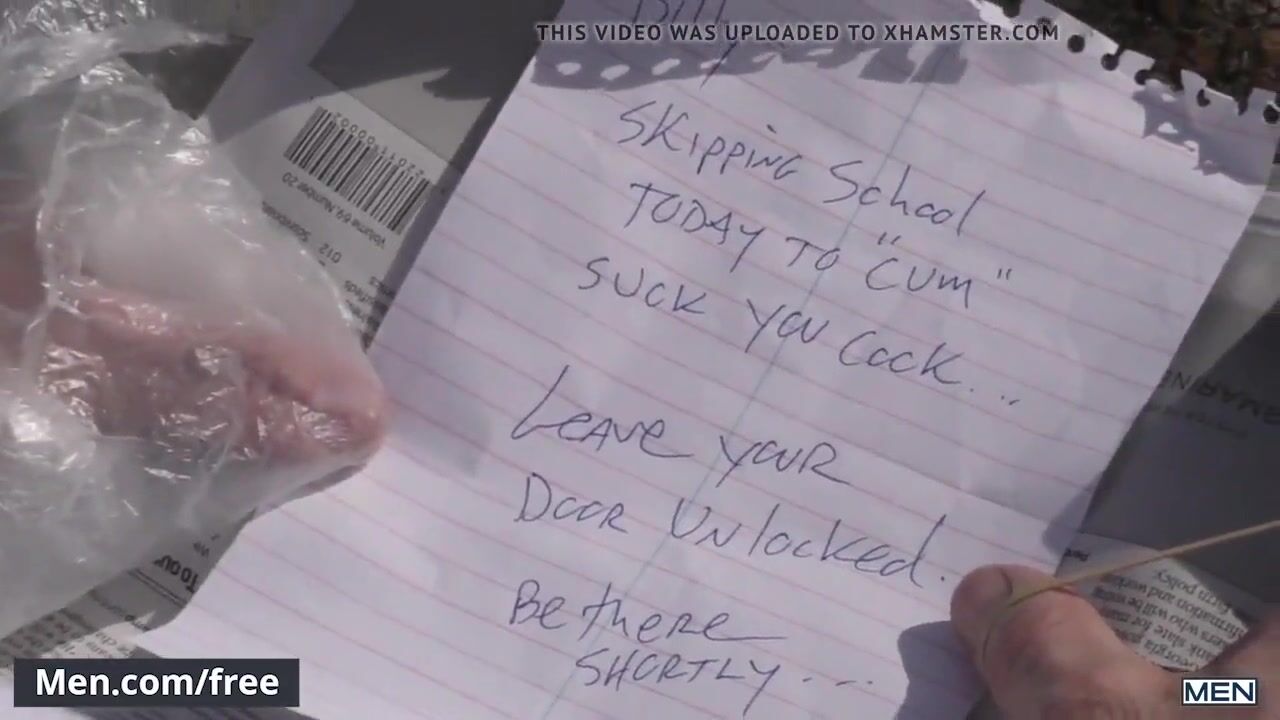 THIS VIDEO WAS UPLOADED TO XHAMSTER.COM
Bill,
SKIPPING School
TODAY TO "CUM"
SUCK YOU COCK...
LEAVE YOUR
DOOR UNlocked.
Be there
SHORTLY...
Volume 69, Number 20
012
Men.com/free
MEN